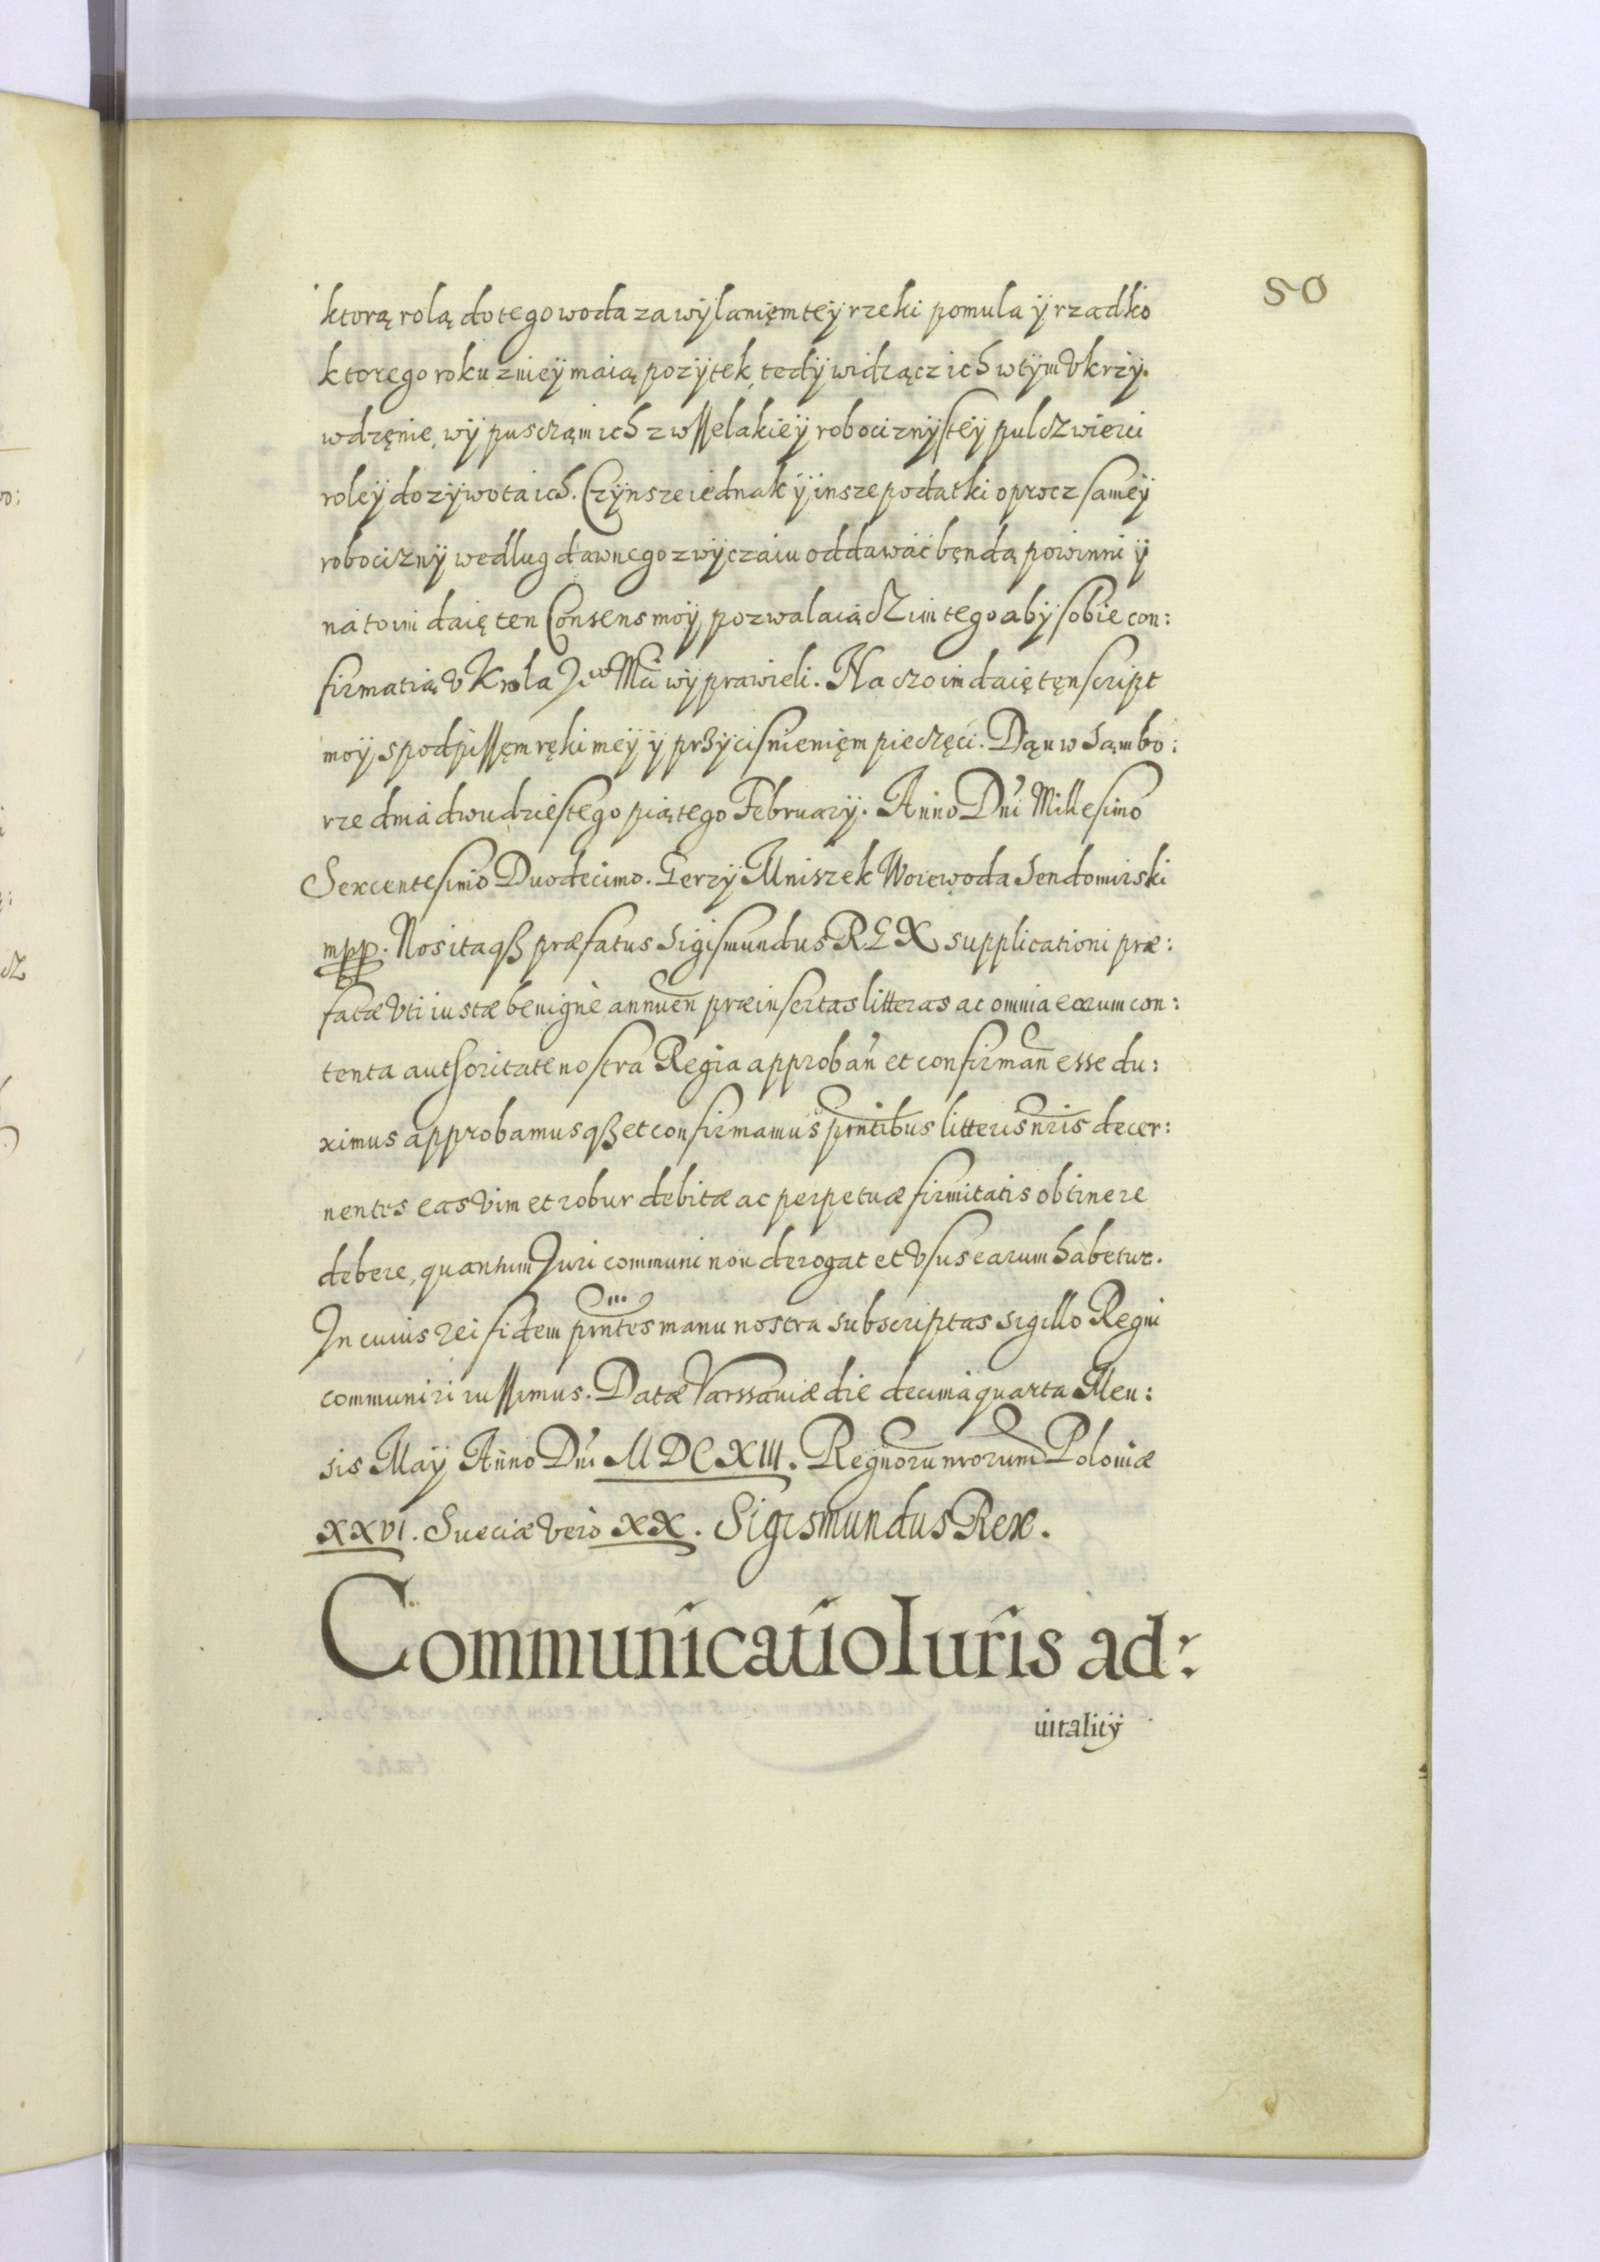 50
ktorą rolą do tego woda za wylanięm tey rzeki pomula y rzadko
ktorego roku z niey maią pozytek, tedy widzącz ich w tym vkrzy.
wdzęnie, wypusczam ich z wsselakiey robocizny s tey pulczwierci
roley do zywota ich. Czynsze iednak y insze podatki oprocz samey
robocizny wedlug dawnego zwyczaiu oddawać będą powinni y
na to im daię ten Consens moy, pozwalaiącz im tego aby sobie con:
firmatią v Krola J° Mci wyprawieli. Na czo im daię tęn script
moy, s podpissęm ręki mey y przycisnienięm pieczęci. Dąn w Sąmbo:
rze dnia dwudziestego piątego February. Anno Dni Millesimo
Sexcentesimo Duodecimo. Gerzy Mniszek Woiewoda Sendomirski
mpp. Nos itaqß præfatus Sigismundus REX supplicationi præ:
fatæ vti iustæ benignè annuen̄ præinsertas litteras ac omnia earum con:
tenta authoritate nostra Regia approban̄ et confirman̄ esse du:
ximus approbamusqß et confirmamus pn̄tibus litteris nr̄is decer:
nentes eas vim et robur debitæ ac perpetuæ firmitatis obtinere
debere, quantum Juri communi non derogat et vsus earum habetur.
In cuius rei fidem pn̄tes manu nostra subscriptas sigillo Regni
communiri iussimus. Datæ Varssaviæ die decima quarta Men:
sis May Anno Dni MDCXIII. Regnorū nrorum Poloniæ
XXVI. Sueciæ vero XX. Sigismundus Rex.
Communicatio Iuris ad:
uitality